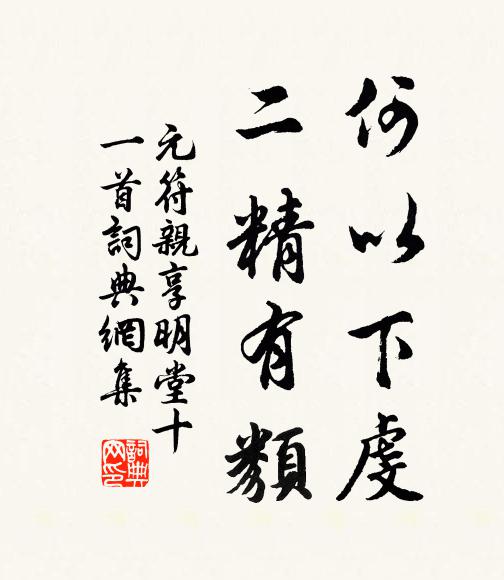 何以下虔
二精有類
元符親享明堂十
一首詞典網集
詞典
网印